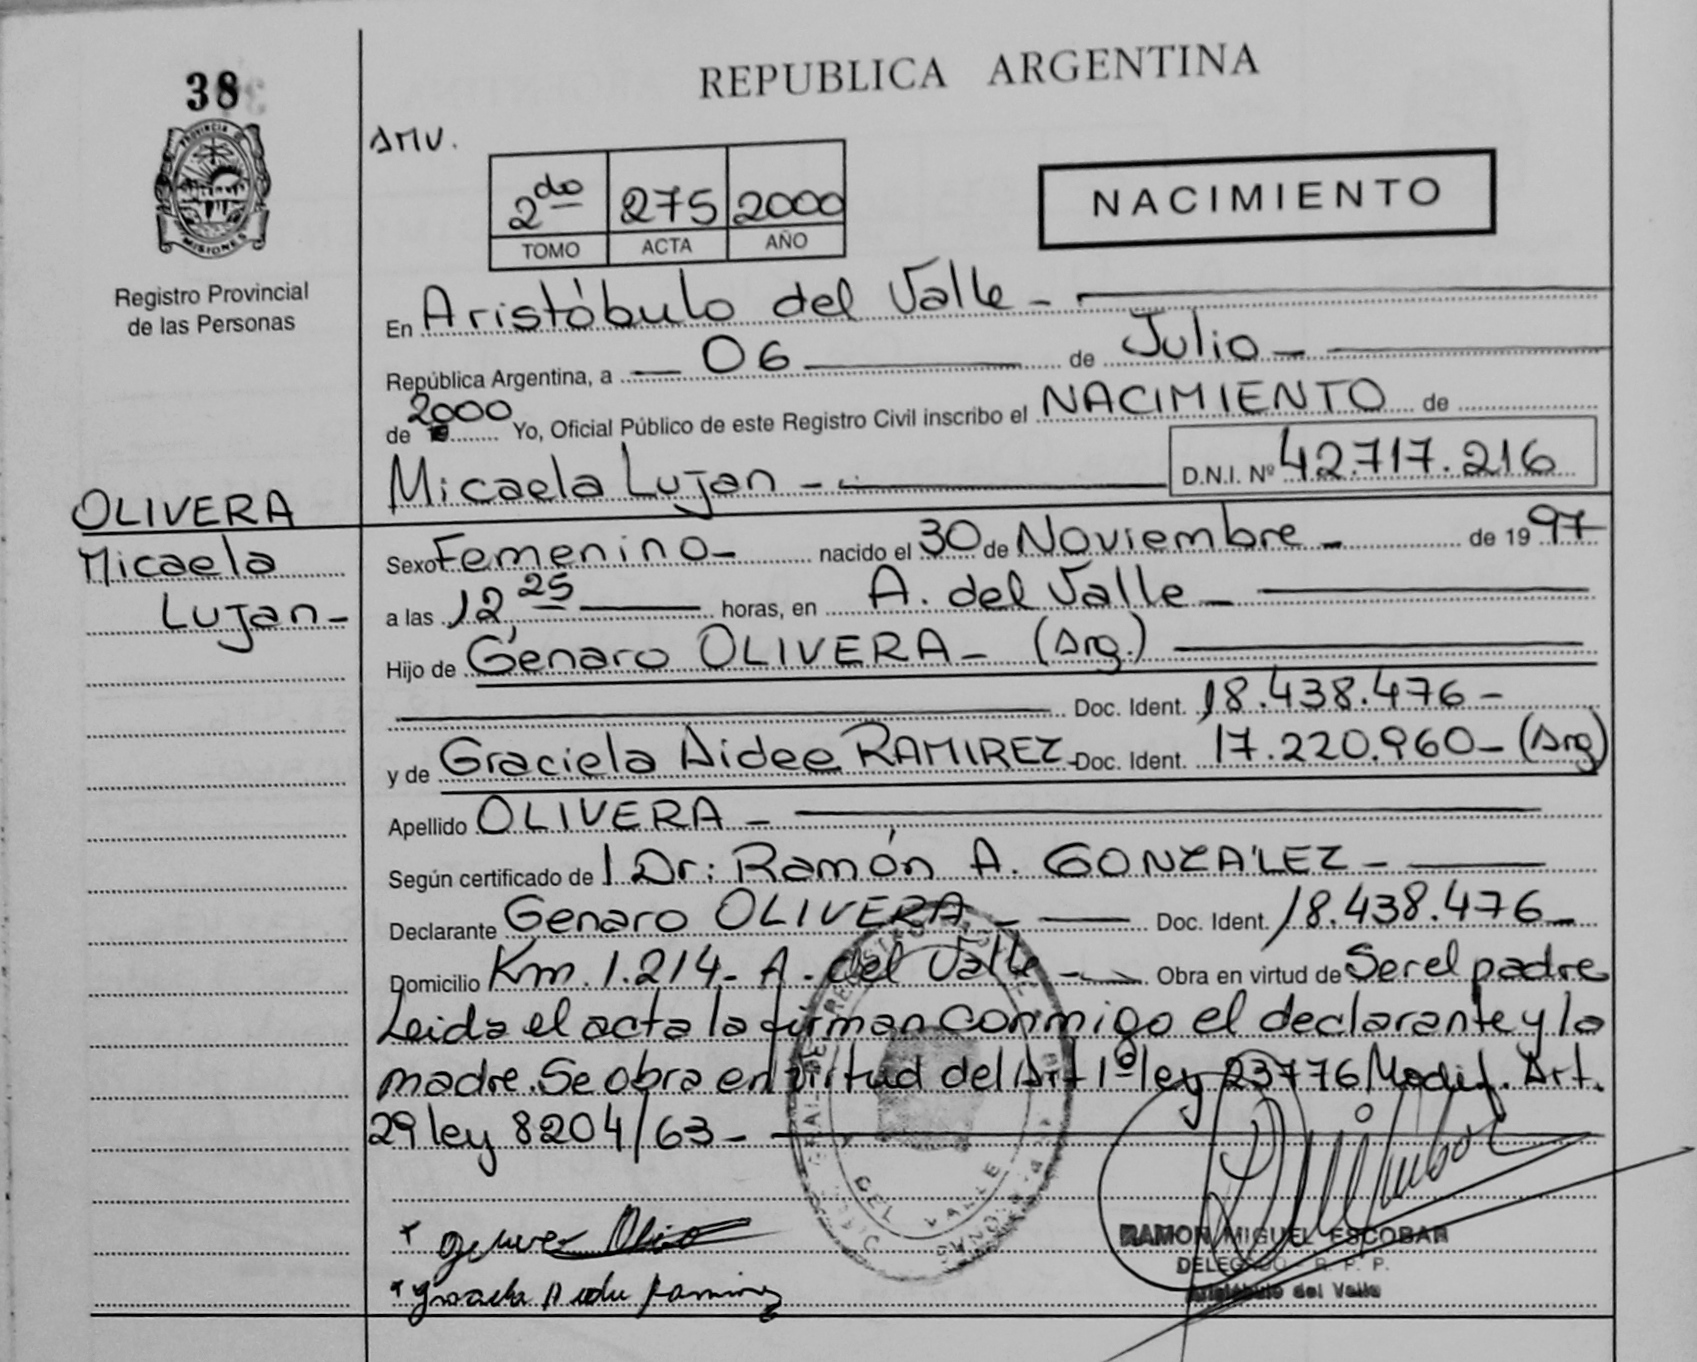 38
PROVINCIA DE
MISIONES
Registro Provincial
de las Personas
OLIVERA
Micaela
Lujan-
REPUBLICA ARGENTINA
AMV.
2do 275 2000
TOMO ACTA AÑO
NACIMIENTO
En Aristóbulo del Valle -
República Argentina, a - 06 de Julio -
de 2000 Yo, Oficial Público de este Registro Civil inscribo el NACIMIENTO de
Micaela Lujan - D.N.I. Nº 42.717.216
Sexo Femenino - nacido el 30 de Noviembre - de 1997
a las 12 25 horas, en A. del Valle -
Hijo de Génaro OLIVERA - (Arg.)
Doc. Ident. 18.438.476 -
y de Graciela Aidee RAMIREZ - Doc. Ident. 17.220.960 - (Arg)
Apellido OLIVERA -
Según certificado de l Dr: Ramón A. GONZALEZ -
Declarante Genaro OLIVERA - Doc. Ident. 18.438.476 -
Domicilio Km. 1.214 - A. del Valle - Obra en virtud de Ser el padre
Leida el acta la firman conmigo el declarante y la
madre. Se obra en virtud del Art 1º ley 23776 Modif. Art.
29 ley 8204/63 -
DEL VALLE
RAMON MIGUEL ESCOBAR
DELEGADO - R. P. P.
Aristóbulo del Valle